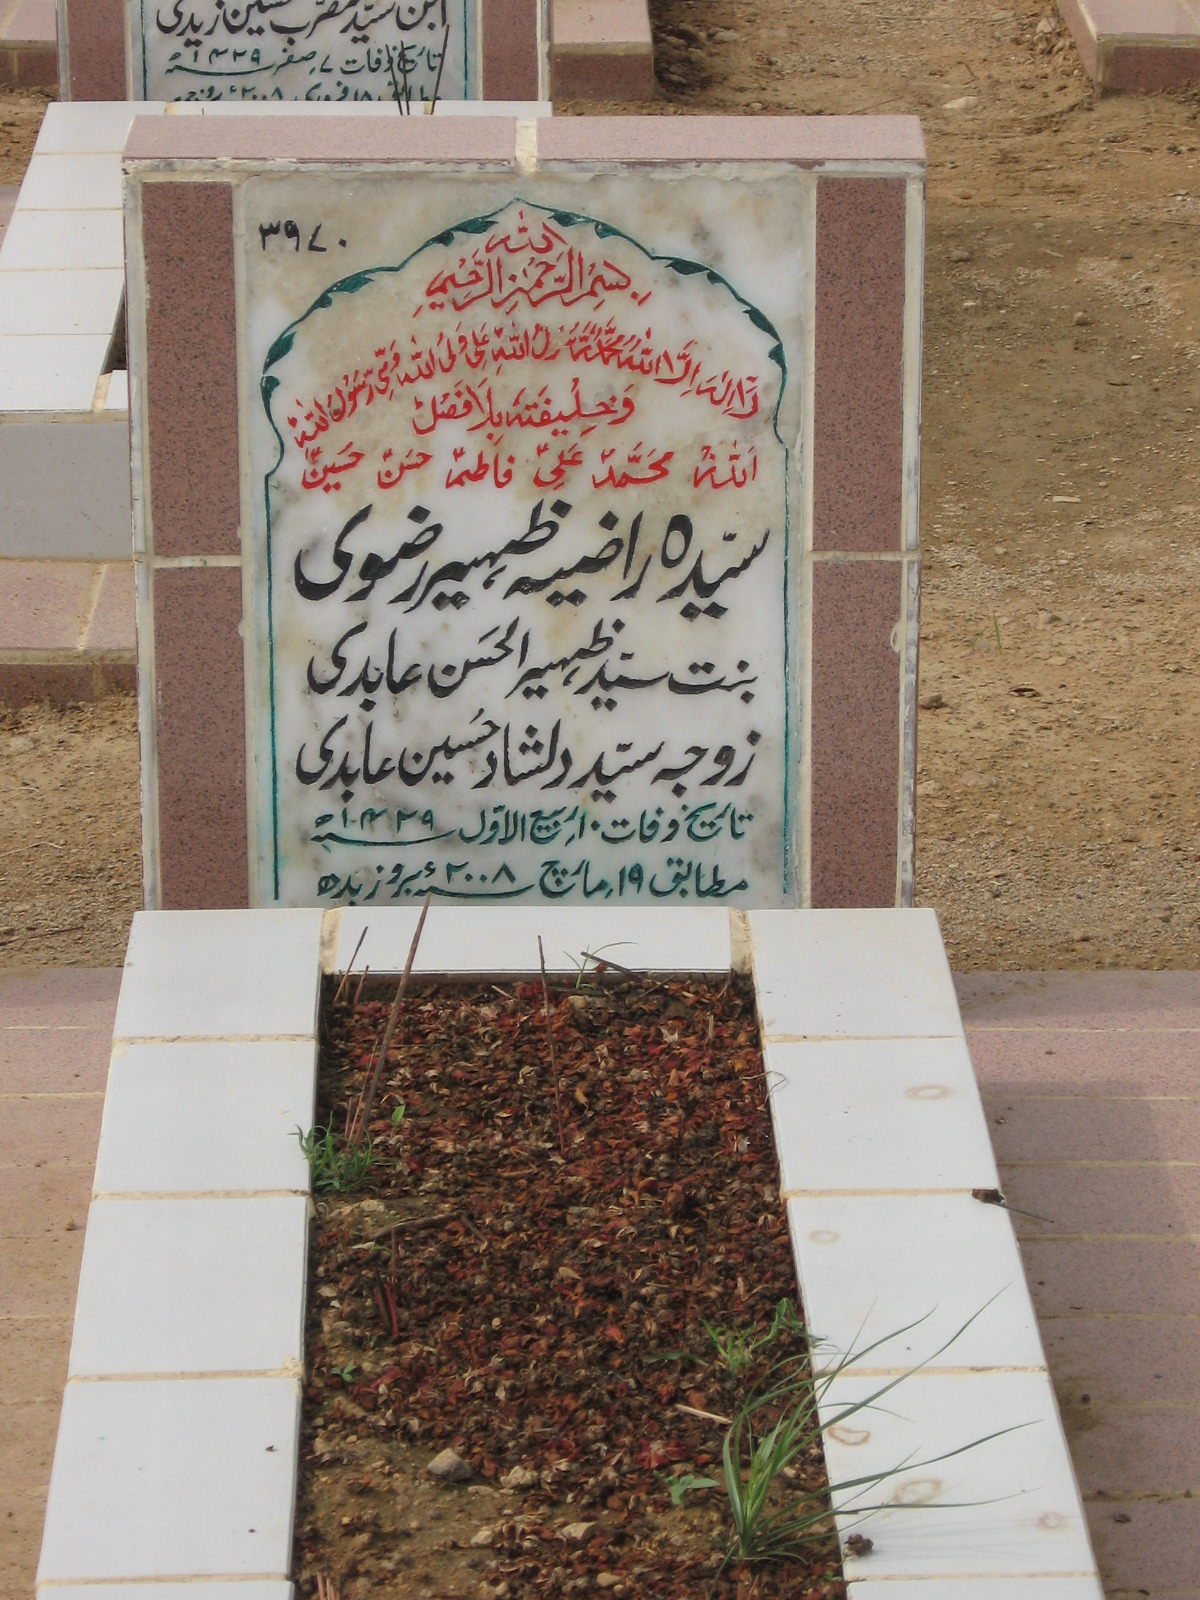 ابن سیّد مضرب حسین زیدی
تاریخ وفات ۷ صفر ۱۴۲۹ھ
مطابق ۲۰۰۸ء بروز
۳۹۷۰
بِسْمِ اللہِ الرَّحْمٰنِ الرَّحِیْمِ
لَا اِلٰہَ اِلَّا اللہُ مُحَمَّدٌ رَّسُوْلُ اللہِ عَلِیٌّ وَلِیُّ اللہِ وَصِیُّ رَسُوْلِ اللہِ
وَخَلِیْفَتُہٗ بِلَا فَصْلٍ
اَللہُ مُحَمَّدٌ عَلِیٌّ فَاطِمَہٌ حَسَنٌ حُسَیْنٌ
سیّدہ راضیہ ظہیر رضوی
بنت سیّد ظہیر الحَسَن عابدی
زوجہ سیّد دلشاد حُسین عابدی
تاریخ وفات ۱۰ ربیع الاوّل ۱۴۲۹ھ
مطابق ۱۹ مارچ ۲۰۰۸ء بروز بدھ